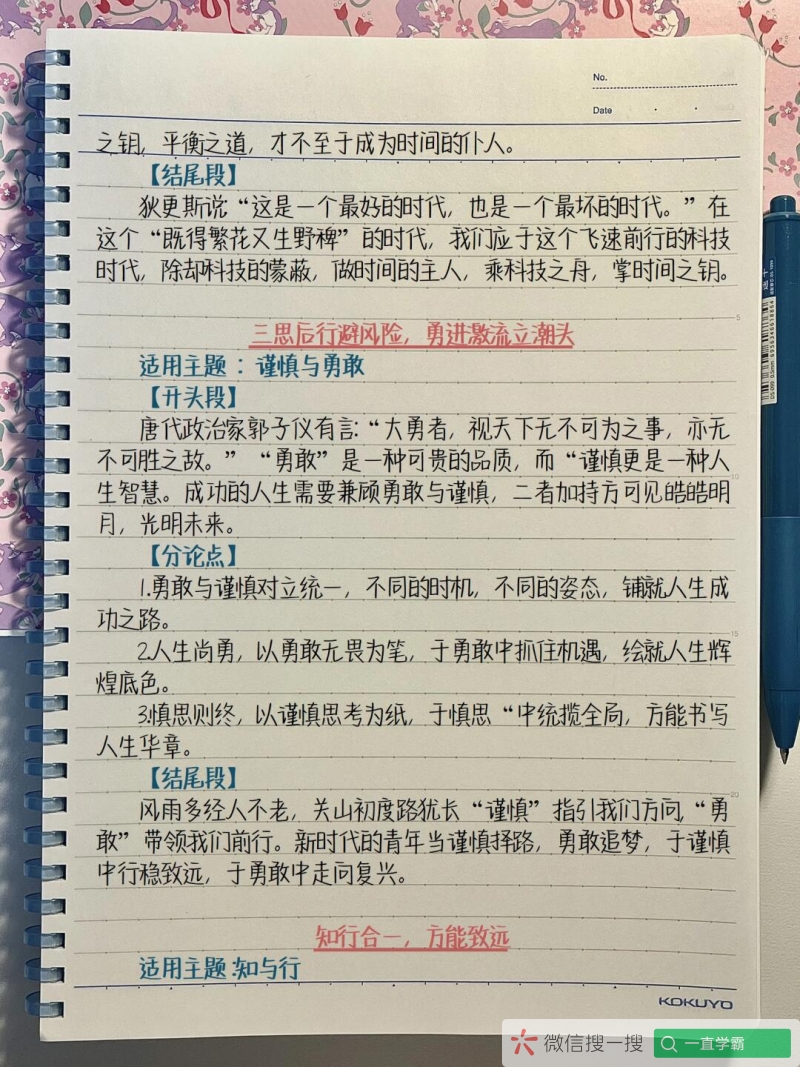 No.
Date
之钥，平衡之道，才不至于成为时间的仆人。
【结尾段】
狄更斯说：“这是一个最好的时代，也是一个最坏的时代。”在
这个“既得繁花又生野稗”的时代，我们应于这个飞速前行的科技
时代，除却科技的蒙蔽，做时间的主人，乘科技之舟，掌时间之钥。
三思后行避风险，勇进激流立潮头
适用主题：谨慎与勇敢
【开头段】
唐代政治家郭子仪有言：“大勇者，视天下无不可为之事，亦无
不可胜之敌。”“勇敢”是一种可贵的品质，而“谨慎更是一种人
生智慧。成功的人生需要兼顾勇敢与谨慎，二者加持方可见皓皓明
月，光明未来。
【分论点】
1.勇敢与谨慎对立统一，不同的时机，不同的姿态，铺就人生成
功之路。
2.人生尚勇，以勇敢无畏为笔，于勇敢中抓住机遇，绘就人生辉
煌底色。
3.慎思则终，以谨慎思考为纸，于慎思“中统揽全局，方能书写
人生华章。
【结尾段】
风雨多经人不老，关山初度路犹长“谨慎”指引我们方向，“勇
敢”带领我们前行。新时代的青年当谨慎择路，勇敢追梦，于谨慎
中行稳致远，于勇敢中走向复兴。
知行合一，方能致远
适用主题：知与行
KOKUYO
微信搜一搜
一直学霸